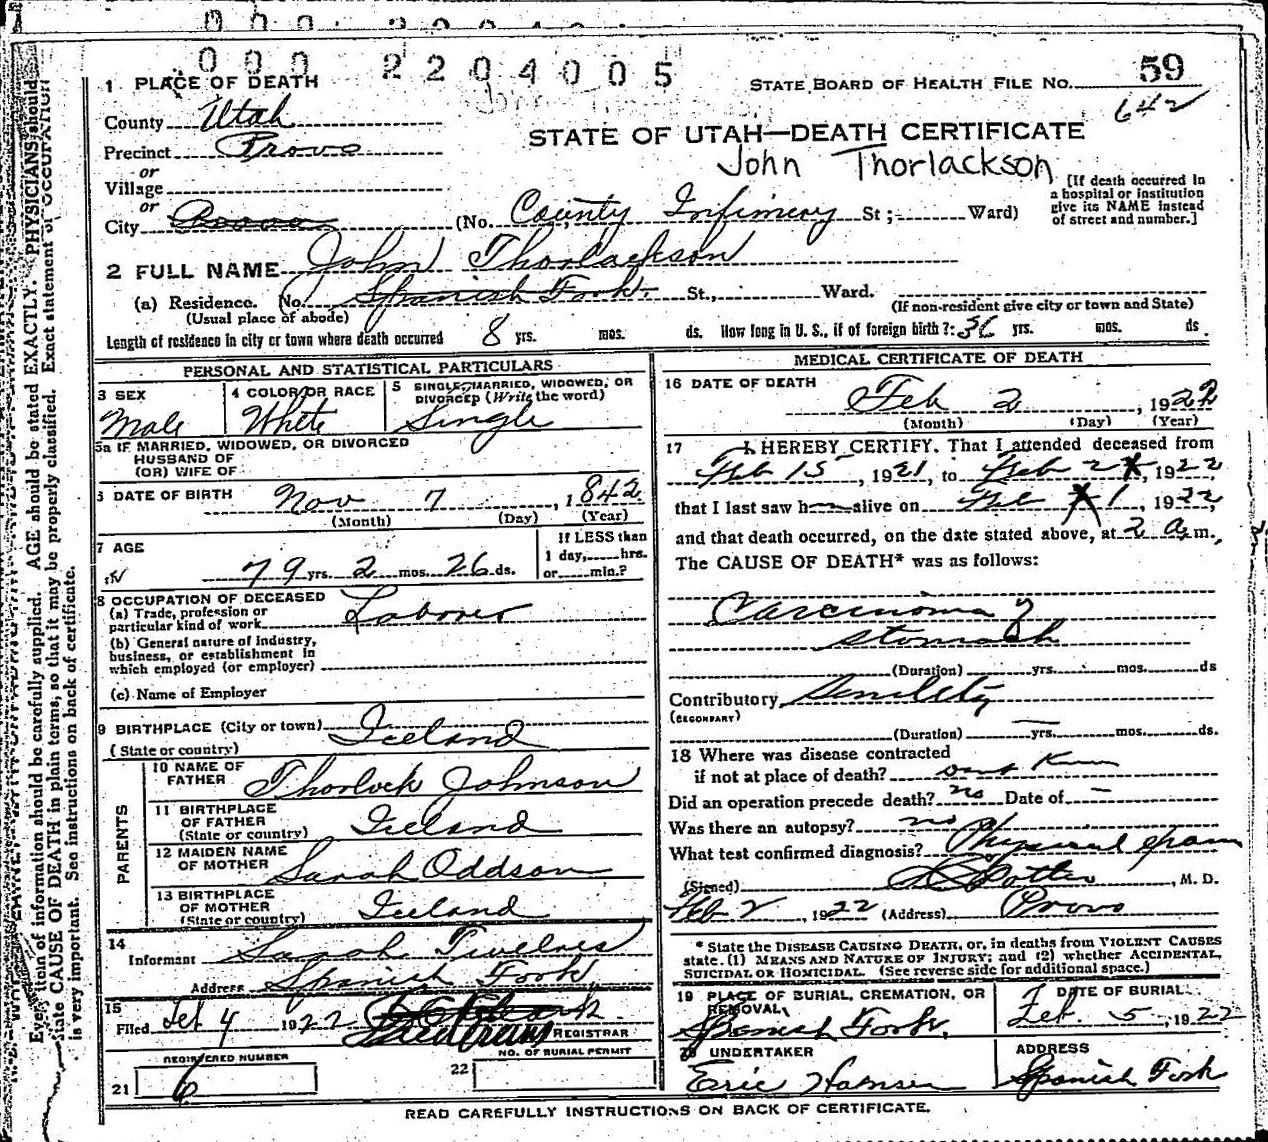 000 2204005
1 PLACE OF DEATH
STATE BOARD OF HEALTH FILE No. 59
642
County Utah
STATE OF UTAH—DEATH CERTIFICATE
Precinct Provo
John Thorlackson
or
Village
or
City Provo (No. County Infirmery St; Ward)
[If death occurred in a hospital or institution give its NAME instead of street and number.]
2 FULL NAME John Thorlackson
(a) Residence. No. Spanish Fork. St., Ward.
(Usual place of abode) (If non-resident give city or town and State)
Length of residence in city or town where death occurred 8 yrs. mos. ds. How long in U. S., if of foreign birth?: 36 yrs. mos. ds.
PERSONAL AND STATISTICAL PARTICULARS
3 SEX Male
4 COLOR OR RACE White
5 SINGLE, MARRIED, WIDOWED, OR DIVORCED (Write the word) Single
5a IF MARRIED, WIDOWED, OR DIVORCED
HUSBAND OF
(OR) WIFE OF
6 DATE OF BIRTH Nov 7, 1842
(Month) (Day) (Year)
7 AGE 79 yrs. 2 mos. 26 ds.
If LESS than 1 day, hrs. or min.?
8 OCCUPATION OF DECEASED
(a) Trade, profession or particular kind of work Laborer
(b) General nature of industry, business, or establishment in which employed (or employer)
(c) Name of Employer
9 BIRTHPLACE (City or town) Iceland
(State or country)
PARENTS
10 NAME OF FATHER Thorlock Johnson
11 BIRTHPLACE OF FATHER (State or country) Iceland
12 MAIDEN NAME OF MOTHER Sarah Oddson
13 BIRTHPLACE OF MOTHER (State or country) Iceland
14
Informant Sarah
Address Spanish Fork
15
Filed Feb 4 1922 REGISTRAR
REGISTERED NUMBER
21 6
NO. OF BURIAL PERMIT
22
MEDICAL CERTIFICATE OF DEATH
16 DATE OF DEATH
Feb 2, 1922
(Month) (Day) (Year)
17 I HEREBY CERTIFY, That I attended deceased from
Feb 15, 1921, to Feb 2, 1922,
that I last saw h alive on Feb 1, 1922,
and that death occurred, on the date stated above, at 2 a.m.,
The CAUSE OF DEATH* was as follows:
Carcinoma of
stomach
(Duration) yrs. mos. ds
Contributory Senility
(SECONDARY)
(Duration) yrs. mos. ds.
18 Where was disease contracted
if not at place of death? dont Know
Did an operation precede death? no Date of
Was there an autopsy? no
What test confirmed diagnosis? Physical exam
(Signed) , M. D.
Feb 2, 1922 (Address) Provo
* State the DISEASE CAUSING DEATH, or, in deaths from VIOLENT CAUSES
state. (1) MEANS AND NATURE OF INJURY; and (2) whether ACCIDENTAL,
SUICIDAL OR HOMICIDAL. (See reverse side for additional space.)
19 PLACE OF BURIAL, CREMATION, OR REMOVAL
Spanish Fork,
DATE OF BURIAL
Feb. 5, 1922
20 UNDERTAKER
Eric Hansen
ADDRESS
Spanish Fork
READ CAREFULLY INSTRUCTIONS ON BACK OF CERTIFICATE.
Every item of information should be carefully supplied. AGE should be stated EXACTLY. PHYSICIANS should
state CAUSE OF DEATH in plain terms, so that it may be properly classified. Exact statement of OCCUPATION
is very important. See instructions on back of certificate.